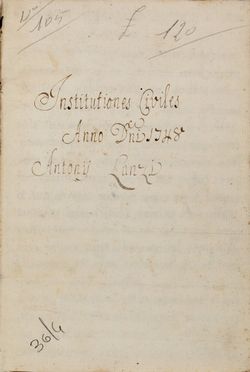 105
£ 120
Institutiones Civiles
Anno Dni 1748
Antonij Lanzi
36/4